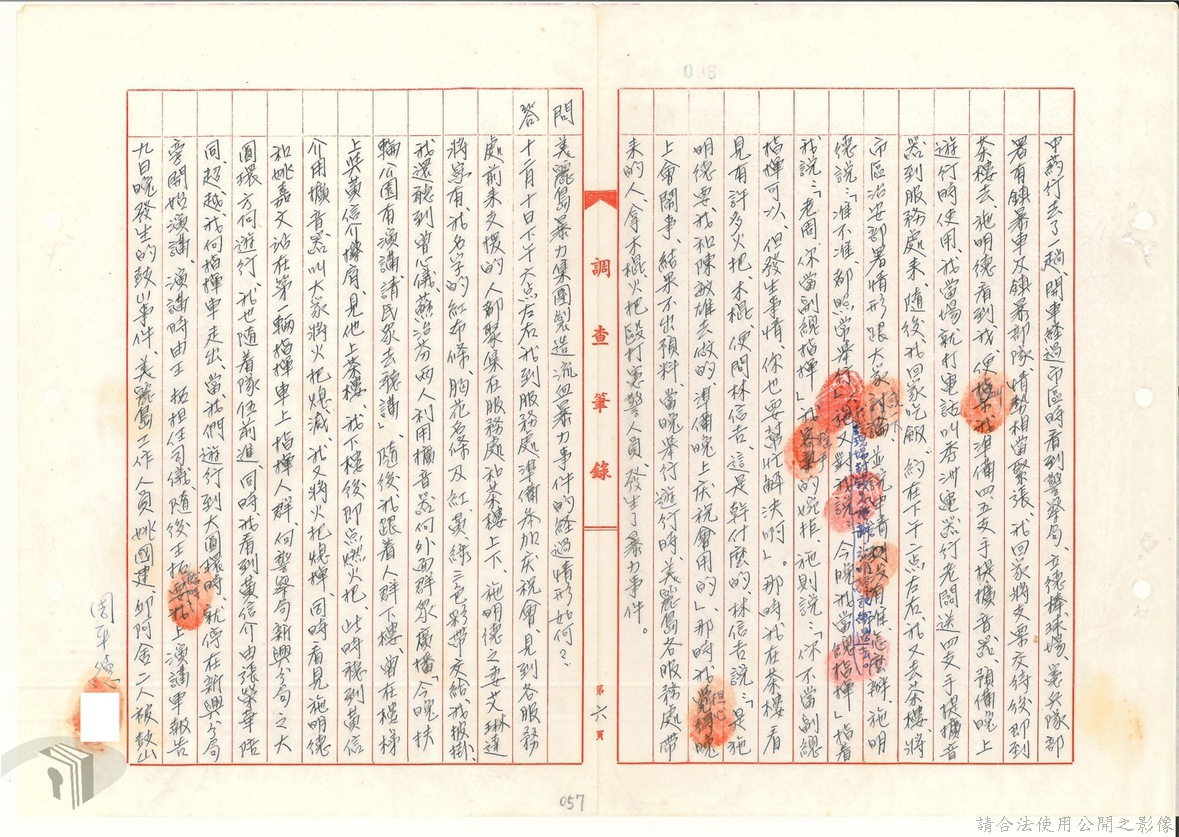 中葯行去了一趟、開車経過市區時看到警察局、立德棒球場、憲兵隊部
署有鎮暴車及鎮暴部隊、情勢相當緊張、我回家將支票交待後即到
茶樓去、施明德看到我、便叫我準備四五支手提擴音器、預備晚上
遊行時使用、我當場就打電話叫秀洲電器行老闆送四支手提擴音
器到服務處來、隨後我回家吃飯、約在下午二点左右、我又去茶樓、將
市區治安部署情形跟大家討論、並説
德説:「准不准、都照常舉行」他又對我説:「今晚我當總指揮」指着
我説:「老周你當副總指揮」我 的婉拒、施則説:「你不當副總
指揮可以、但發生事情你也要幫忙解決啊」。那時我在茶樓看
見有許多火把、木棍、便問林信吉、這是幹什麼的、林信吉説:「是施
明德要我和陳敏雄去做的、準備晚上庆祝會用的」、那時我担心晚
上會鬧事、結果不出預料、當晚舉行遊行時、美麗島各服務處帶
来的人、拿木棍、火把毆打憲警人員、發生了暴力事件。
調查筆錄
第六頁
問 美麗島暴力集團製造流血暴力事件的経過情形如何?
答 十二月十日下午六点左右、我到服務處準備参加庆祝會、見到各服務
處前来支援的人都聚集在服務處和茶樓上下、施明德之妻艾琳達
將寫有我名字的紅布條、胸花名條及紅、黃、綠三色彩带交給我披掛、
我還聽到曾心儀、蘇治芬兩人利用擴音器向外面群衆廣播「今晚扶
輪公園有演講請民衆去聽講」、隨後我跟着人群下樓、曾在樓梯
上與黃信介擦肩、見他上茶樓、我下樓後即点燃火把、此時聽到黃信
介用擴音器叫大家將火把熄滅、我又將火把熄掉、同時看見施明德
和姚嘉文站在第一輛指揮車上指揮人群、向警察局新興分局之大
圓環方向遊行、我也随着隊伍前進、同時我看到黃信介由張榮華陪
同、超越我向指揮車走出、當我們遊行到大圓環時、就停在新興分局
旁開始演講、演講時由王拓担任司儀随後王拓 上演講車報告
九日晚發生的鼓山事件、美麗島工作人員姚國建、邱阿舍二人被鼓山
周平德
057
請合法使用公開之影像